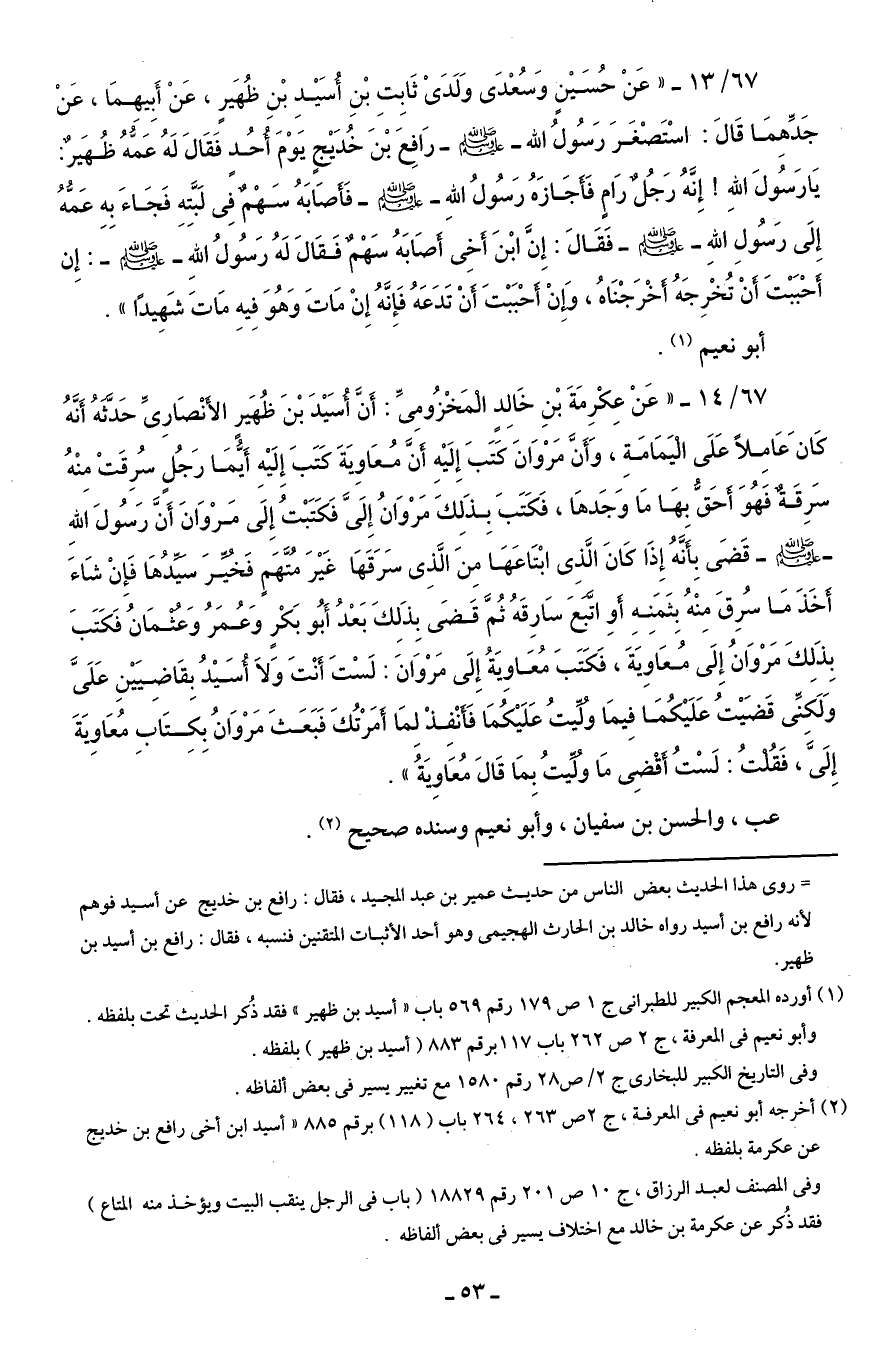 ١٣/٦٧ ـ « عَنْ حُسَيْنٍ وَسُعْدَى وَلَدَىْ ثَابِتِ بْنِ أُسَيْدِ بْنِ ظُهَيرٍ ، عَنْ أَبِيهِمَا ، عَنْ
جَدِّهِمَا قَالَ : اسْتَصْغَرَ رَسُولُ الله ـ ﷺ ـ رَافِعَ بْنَ خُدَيْجٍ يَوْمَ أُحُدٍ فَقَالَ لَهُ عَمُّهُ ظُهَيرٌ :
يَارَسُولَ اللهِ ! إِنَّهُ رَجُلٌ رَامٍ فَأَجَازَهُ رَسُولُ الله ـ ﷺ ـ فَأَصَابَهُ سَهْمٌ فِى لَبَّتِهِ فَجَاءَ بِهِ عَمُّهُ
إِلَى رَسُولِ الله ـ ﷺ ـ فَقَالَ : إِنَّ ابْنَ أَخِى أَصَابَهُ سَهْمٌ فَقَالَ لَهُ رَسُولُ الله ـ ﷺ ـ : إِن
أَحْبَبْتَ أَنْ تُخْرِجَهُ أَخْرَجْنَاهُ ، وَإِنْ أَحْبَبْتَ أَنْ تَدَعَهُ فَإِنَّهُ إِنْ مَاتَ وَهُوَ فِيهِ مَاتَ شَهِيدًا » .
أبو نعيم (١) .
١٤/٦٧ ـ « عَنْ عِكْرِمَةَ بْنِ خَالِدٍ المَخْزُومِىِّ : أَنَّ أُسَيْدَ بْنَ ظُهَيرٍ الأَنْصَارِىِّ حَدَّثَهُ أَنَّهُ
كَانَ عَامِلاً عَلَى الْيَمَامَةِ ، وَأَنَّ مَرْوَانَ كَتَبَ إِلَيْهِ أَنَّ مُعَاوِيَةَ كَتَبَ إِلَيْهِ أَيُّمَا رَجُلٍ سُرِقَتْ مِنْهُ
سَرِقَةٌ فَهُوَ أَحَقُّ بِهَا مَا وَجَدَهَا ، فَكَتَبَ بِذَلِكَ مَرْوَانُ إِلَىَّ فَكَتَبْتُ إِلَى مَرْوَانَ أَنَّ رَسُولَ الله
ـ ﷺ ـ قَضَى بِأَنَّهُ إِذَا كَانَ الَّذِى ابْتَاعَهَا مِنَ الَّذِى سَرَقَهَا غَيْرَ مُتَّهَمٍ فَخُيِّرَ سَيِّدُهَا فَإِنْ شَاءَ
أَخَذَ مَا سُرِقَ مِنْهُ بِثَمَنِهِ أَوِ اتَّبَعَ سَارِقَهُ ثُمَّ قَضَى بِذَلِكَ بَعْدُ أَبُو بَكْرٍ وَعُمَرُ وَعُثْمَانُ فَكَتَبَ
بِذَلِكَ مَرْوَانُ إِلَى مُعَاوِيَةَ ، فَكَتَبَ مُعَاوِيَةُ إِلَى مَرْوَانَ : لَسْتَ أَنْتَ وَلاَ أُسَيْدُ بِقَاضِيَيْنِ عَلَىَّ
وَلَكِنِّى قَضَيْتُ عَلَيْكُمَا فِيمَا وُلِّيتُ عَلَيْكُمَا فَأَنْفِذْ لِمَا أَمَرْتُكَ فَبَعَثَ مَرْوَانُ بِكِتَابِ مُعَاوِيَةَ
إِلَىَّ ، فَقُلْتُ : لَسْتُ أَقْضِى مَا وُلِّيتُ بِمَا قَالَ مُعَاوِيَةُ » .
عب ، والحسن بن سفيان ، وأبو نعيم وسنده صحيح (٢) .
= روى هذا الحديث بعض الناس من حديث عمير بن عبد المجيد ، فقال : رافع بن خديج عن أسيد فوهم
لأنه رافع بن أسيد رواه خالد بن الحارث الهجيمى وهو أحد الأثبات المتقنين فنسبه ، فقال : رافع بن أسيد بن
ظهير.
(١) أورده المعجم الكبير للطبرانى ج ١ ص ١٧٩ رقم ٥٦٩ باب « أسيد بن ظهير » فقد ذُكر الحديث تحت بلفظه .
وأبو نعيم فى المعرفة ، ج ٢ ص ٢٦٢ باب ١١٧ برقم ٨٨٣ ( أسيد بن ظهير ) بلفظه .
وفى التاريخ الكبير للبخارى ج ٢/ ص٢٨ رقم ١٥٨٠ مع تغيير يسير فى بعض ألفاظه .
(٢) أخرجه أبو نعيم فى المعرفة ، ج ٢ص ٢٦٣ ، ٢٦٤ باب ( ١١٨) برقم ٨٨٥ « أسيد ابن أخى رافع بن خديج
عن عكرمة بلفظه .
وفى المصنف لعبد الرزاق ، ج ١٠ ص ٢٠١ رقم ١٨٨٢٩ ( باب فى الرجل ينقب البيت ويؤخذ منه المتاع )
فقد ذُكر عن عكرمة بن خالد مع اختلاف يسير فى بعض ألفاظه .
ـ ٥٣ ـ